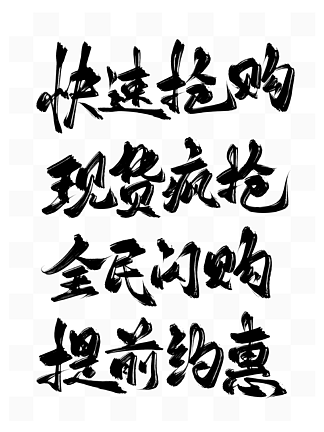 快速抢购
现货疯抢
全民闪购
提前约惠